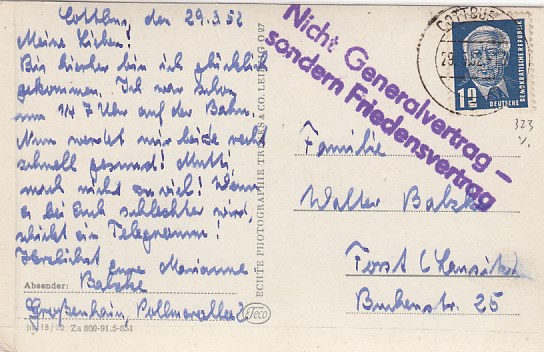 Cottbus, den 29.3.52
Meine Lieben!
Bis hierher bin ich glücklich
gekommen. Ich war schon
um 1/4 7 Uhr auf der Bahn.
Nun werdet mir beide recht
schnell gesund! Mutti,
mach nicht so viel! Wenn
es bei Euch schlechter wird,
schickt ein Telegramm!
Herzlichst
Eure Marianne
Absender: Balzke
Großenhain,
III/18/20 Za 800-91.5-851
ECHTE PHOTOGRAPHIE TRINKS & CO. LEIPZIG O 27
Teco
Nicht Generalvertrag –
sondern Friedensvertrag
COTTBUS
12
DEUTSCHE
DEMOKRATISCHE REPUBLIK
323
Familie
Walter Balzke
Forst (Lausitz)
Buchenstr. 25